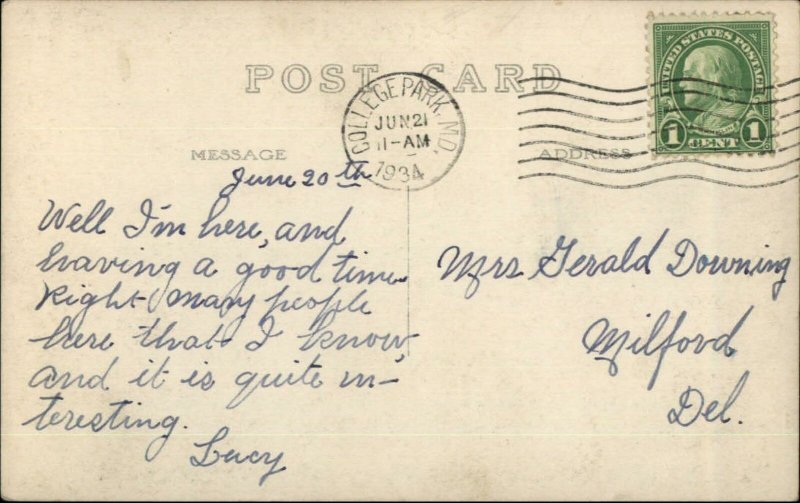 POST CARD
UNITED STATES POSTAGE
1 CENT 1
COLLEGE PARK, MD.
JUN 21
11-AM
1934
MESSAGE
ADDRESS
June 20th
Well I'm here, and
having a good time
Right many people
here that I know,
and it is quite in-
teresting.
Lucy
Mrs Gerald Downing
Milford
Del.